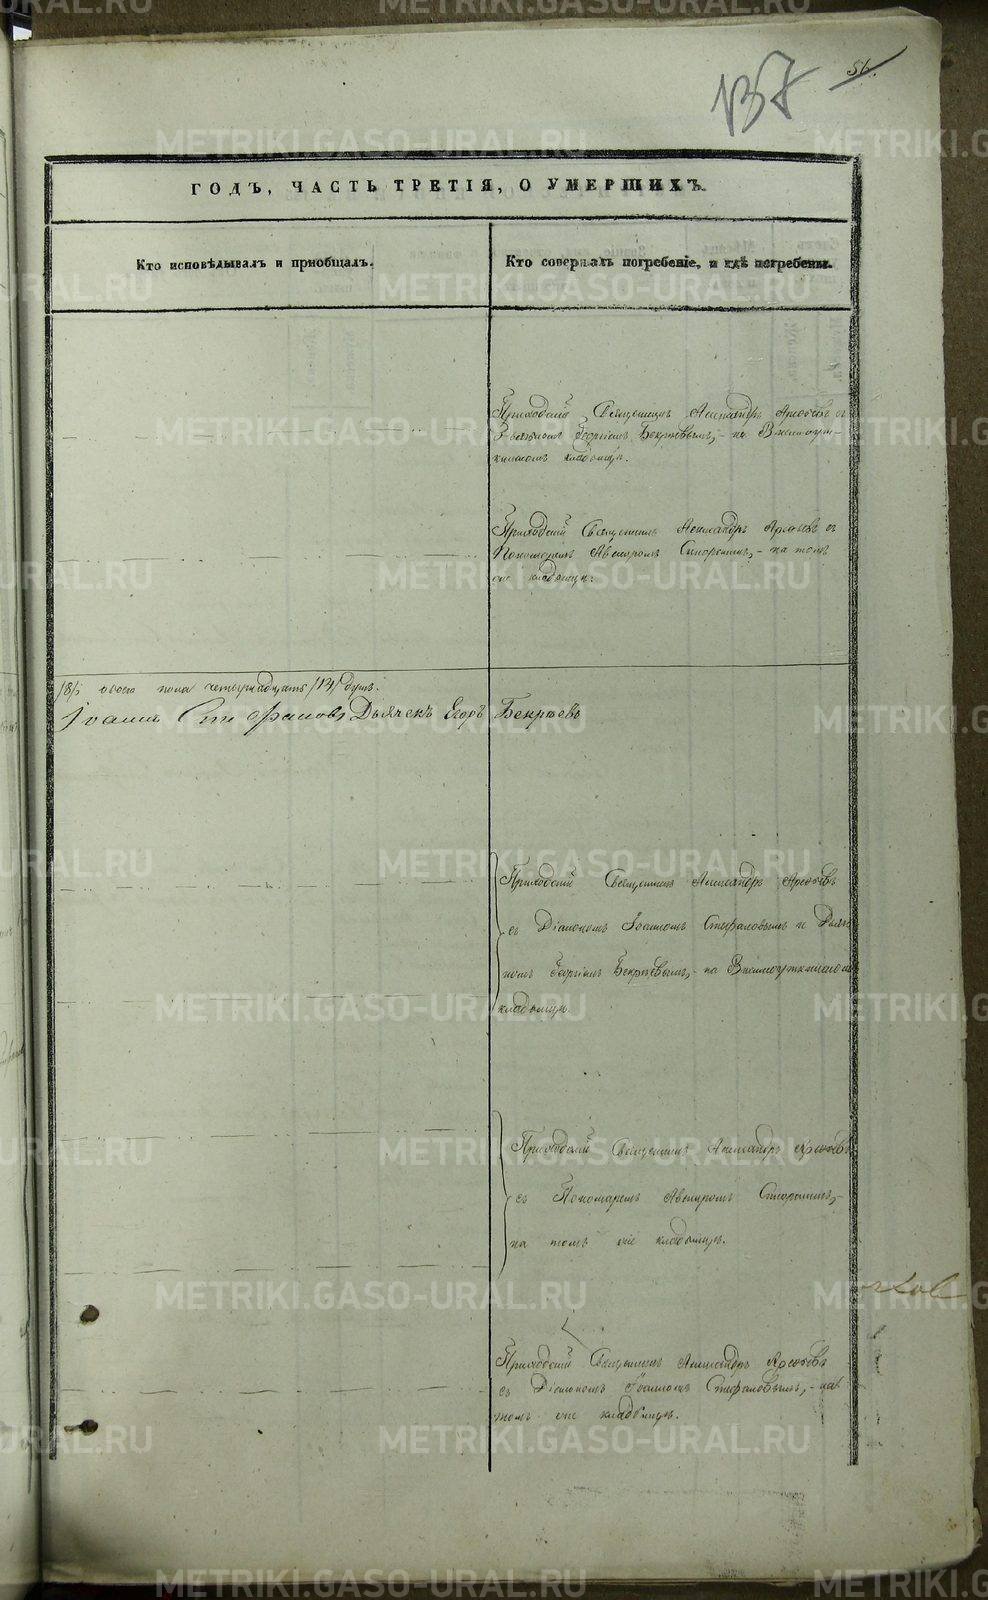 137
56.
ГОДЪ, ЧАСТЬ ТРЕТІЯ, О УМЕРШИХЪ.
Кто исповѣдывалъ и приобщалъ.
Кто совершалъ погребеніе, и гдѣ погребены.
Приходскій Священникъ Александръ Арефьевъ съ
Георгіемъ Бекряевымъ, - на
кладбищѣ.
Приходскій Священникъ Александръ Арефьевъ съ
Пономаремъ Сапоромъ, - на томъ
же кладбищѣ.
/8/ обоего пола четырнадцать /14/ душъ.
Іоаннъ Стефановъ Дьячекъ Егоръ Бекряевъ
Приходскій Священникъ Александръ Арефьевъ
съ Діакономъ Іоанномъ Стефановымъ и Дьяч-
комъ Георгіемъ Бекряевымъ, - на
кладбищѣ.
Приходскій Священникъ Александръ Арефьевъ
съ Пономаремъ
на томъ же кладбищѣ.
Приходскій Священникъ Александръ Арефьевъ
съ Діакономъ Іоанномъ Стефановымъ, - на
томъ же кладбищѣ.
METRIKI.GASO-URAL.RU